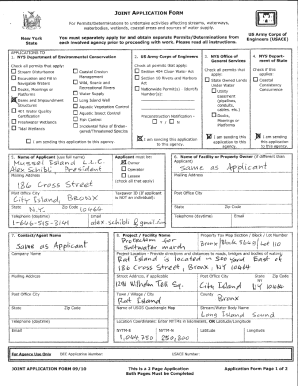 JOINT APPLICATION FORM
For Permits/Determinations to undertake activities affecting streams, waterways, waterbodies, wetlands, coastal areas and sources of water supply.
New York State
You must separately apply for and obtain separate Permits/Determinations from each involved agency prior to proceeding with work. Please read all instructions.
US Army Corps of Engineers (USACE)
APPLICATIONS TO
1. NYS Department of Environmental Conservation
Check all permits that apply:
Stream Disturbance
Excavation and Fill in Navigable Waters
Docks, Moorings or Platforms
Dams and Impoundment Structures
401 Water Quality Certification
Freshwater Wetlands
Tidal Wetlands
Coastal Erosion Management
Wild, Scenic and Recreational Rivers
Water Supply
Long Island Well
Aquatic Vegetation Control
Aquatic Insect Control
Fish Control
Incidental Take of Endangered/Threatened Species
I am sending this application to this agency.
2. US Army Corps of Engineers
Check all permits that apply:
Section 404 Clean Water Act
Section 10 Rivers and Harbors Act
Nationwide Permit(s) Identify Number(s)
Preconstruction Notification -
Y / N
I am sending this application to this agency.
3. NYS Office of General Services
Check all permits that apply:
State Owned Lands Under Water
Utility Easement (pipelines, conduits, cables, etc.)
Docks, Moorings or Platforms
I am sending this application to this agency.
4. NYS Department of State
Check if this applies:
Coastal Consistency Concurrence
I am sending this application to this agency.
5. Name of Applicant (use full name)
Mussel Island L.L.C.
Alex Schibli President
Mailing Address
186 Cross Street
Post Office City
City Island, BRONX
State
N.Y.
Zip Code
10464
Telephone (daytime)
1-646-515-3141
Email
alex.schibli@gmail.com
Applicant must be:
Owner
Operator
Lessee
(check all that apply)
Taxpayer ID (if applicant is NOT an individual):
6. Name of Facility or Property Owner (if different than Applicant)
Same as Applicant
Mailing Address
Post Office City
State
Zip Code
Telephone (daytime)
Email
7. Contact/Agent Name
Same as Applicant
Company Name
Mailing Address
Post Office City
State
Zip Code
Telephone (daytime)
Email
8. Project / Facility Name
Protection for saltwater marsh
Property Tax Map Section / Block / Lot Number
Project Location - Provide directions and distances to roads, bridges and bodies of water:
Rat Island is located
186 Cross Street, Bronx, NY 10464
Street Address, if applicable
Post Office City
City Island
State
NY
Zip Code
10464
Town / Village / City
Rat Island
County
Bronx
Name of USGS Quadrangle Map
Stream/Water Body Name
Long Island Sound
Location Coordinates: Enter NYTMs in kilometers, OR Latitude/Longitude
NYTM-E
NYTM-N
Latitude
Longitude
For Agency Use Only
DEC Application Number:
USACE Number:
JOINT APPLICATION FORM 09/10
This is a 2 Page Application
Both Pages Must be Completed
Application Form Page 1 of 2